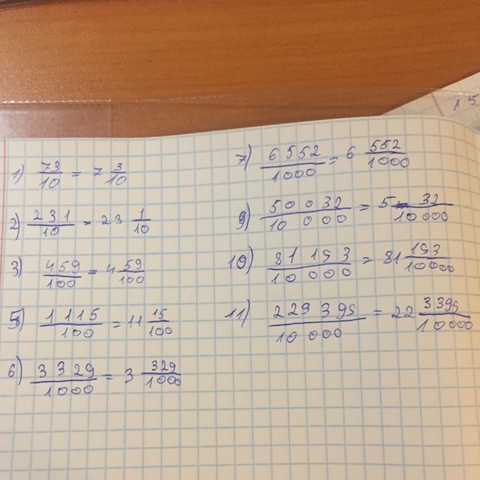 1) 73/10 = 7 3/10
2) 231/10 = 23 1/10
3) 459/100 = 4 59/100
5) 1115/100 = 11 15/100
6) 3329/1000 = 3 329/1000
7) 6552/1000 = 6 552/1000
9) 50032/10000 = 5 32/10000
10) 81193/10000 = 81 193/10000
11) 229395/10000 = 22 3395/10000
15